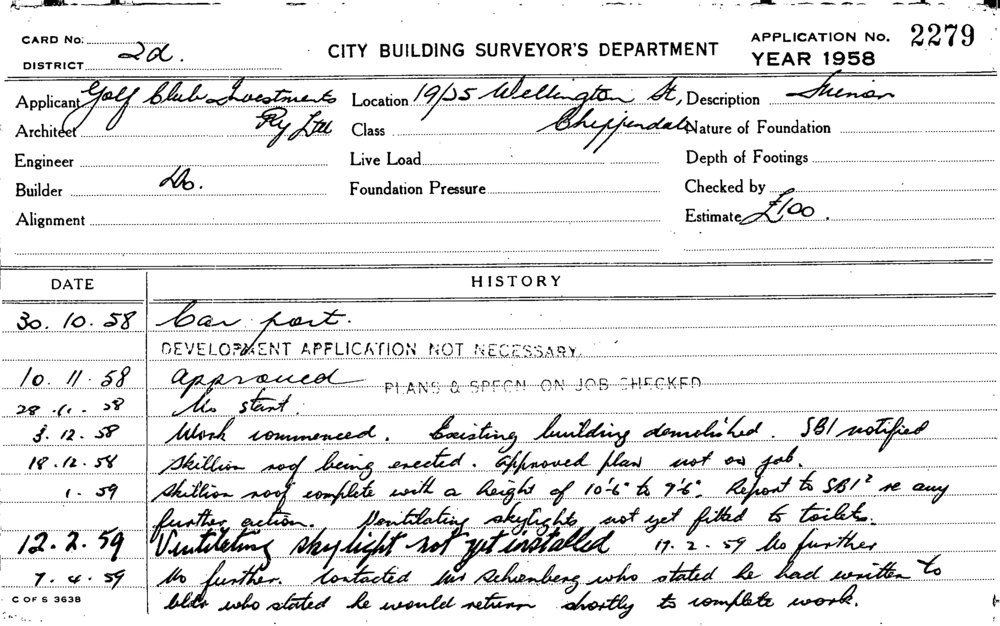 CARD No:
DISTRICT 2d.
CITY BUILDING SURVEYOR'S DEPARTMENT
APPLICATION No. 2279
YEAR 1958
Applicant Golf Club Investments
Location 19/25 Wellington St,
Description Minor
Architect Pty Ltd
Class Chippendale
Nature of Foundation
Engineer
Live Load
Depth of Footings
Builder Do.
Foundation Pressure
Checked by
Alignment
Estimate £100.
DATE HISTORY
30.10.58 Car port.
DEVELOPMENT APPLICATION NOT NECESSARY.
10.11.58 Approved PLANS & SPECN ON JOB CHECKED
28.11.58 No start.
3.12.58 Work commenced. Existing building demolished. SBI notified
18.12.58 Skillion roof being erected. Approved plan not on job.
1.59 Skillion roof complete with a height of 10'6" to 9'6". Report to SBI² re any
further action. Ventilating skylights not yet fitted to toilets.
12.2.59 Ventilating skylight not yet installed 17.2.59 No further
7.4.59 No further. Contacted Mr Schienberg who stated he had written to
C OF S 3638 bldr who stated he would return shortly to complete work.